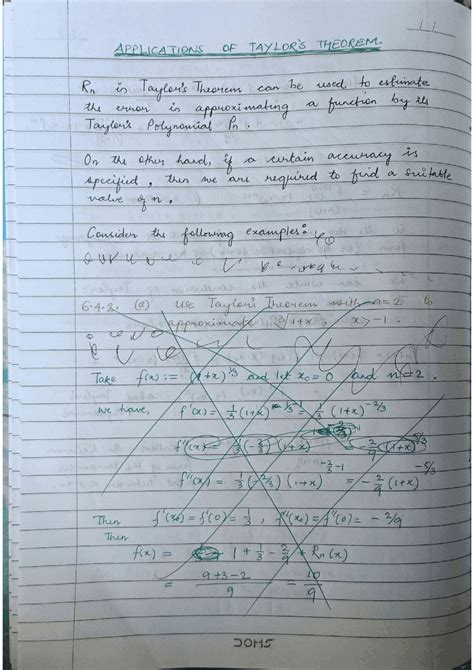 APPLICATIONS OF TAYLOR'S THEOREM.
Rn in Taylor's Theorem can be used to estimate
the error in approximating a function by its
Taylor's Polynomial Pn.
On the other hand, if a certain accuracy is
specified, then we are required to find a suitable
value of n.
Consider the following examples:
6.4.3. (a) Use Taylor's Theorem with n=2 to
approximate ∛1+x, x>-1.
Take f(x) := (1+x)^1/3 and let x₀=0 and n=2.
We have, f'(x) = 1/3 (1+x)^1/3-1 = 1/3 (1+x)^-2/3
f''(x) = 1/3 (-2/3) (1+x) = -2/9 (1+x)^-5/3
f''(x) = 1/3 (-2/3) (1+x)^-2/3-1 = -2/9 (1+x)^-5/3
Then f'(x₀) = f'(0) = 1/3, f''(x₀) = f''(0) = -2/9
Then
f(x) = 1 + 1/3 - 2/9 + Rn(x)
= 9+3-2/9 = 10/9
DOMS